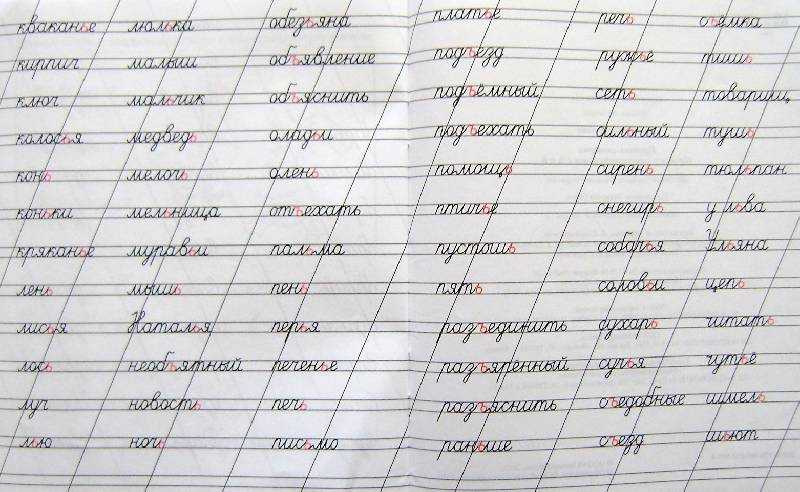 кваканье
кирпич
ключ
колосья
конь
коньки
кряканье
лень
лисья
лось
луч
лью
люлька
малыш
мальчик
медведь
мелочь
мельница
муравьи
мышь
Наталья
необъятный
новость
ночь
обезьяна
объявление
объяснить
оладьи
олень
отъехать
пальма
пень
перья
печенье
печь
письмо
платье
подъезд
подъемный
подъехать
помощь
птичье
пустошь
пять
разъединить
разъяренный
разъяснить
раньше
речь
ружье
сеть
сильный
сирень
снегирь
собачья
соловьи
сухарь
сучья
съедобные
съезд
съемка
тишь
товарищ
тушь
тюльпан
у льва
Ульяна
цепь
читать
чутьё
шмель
шьют